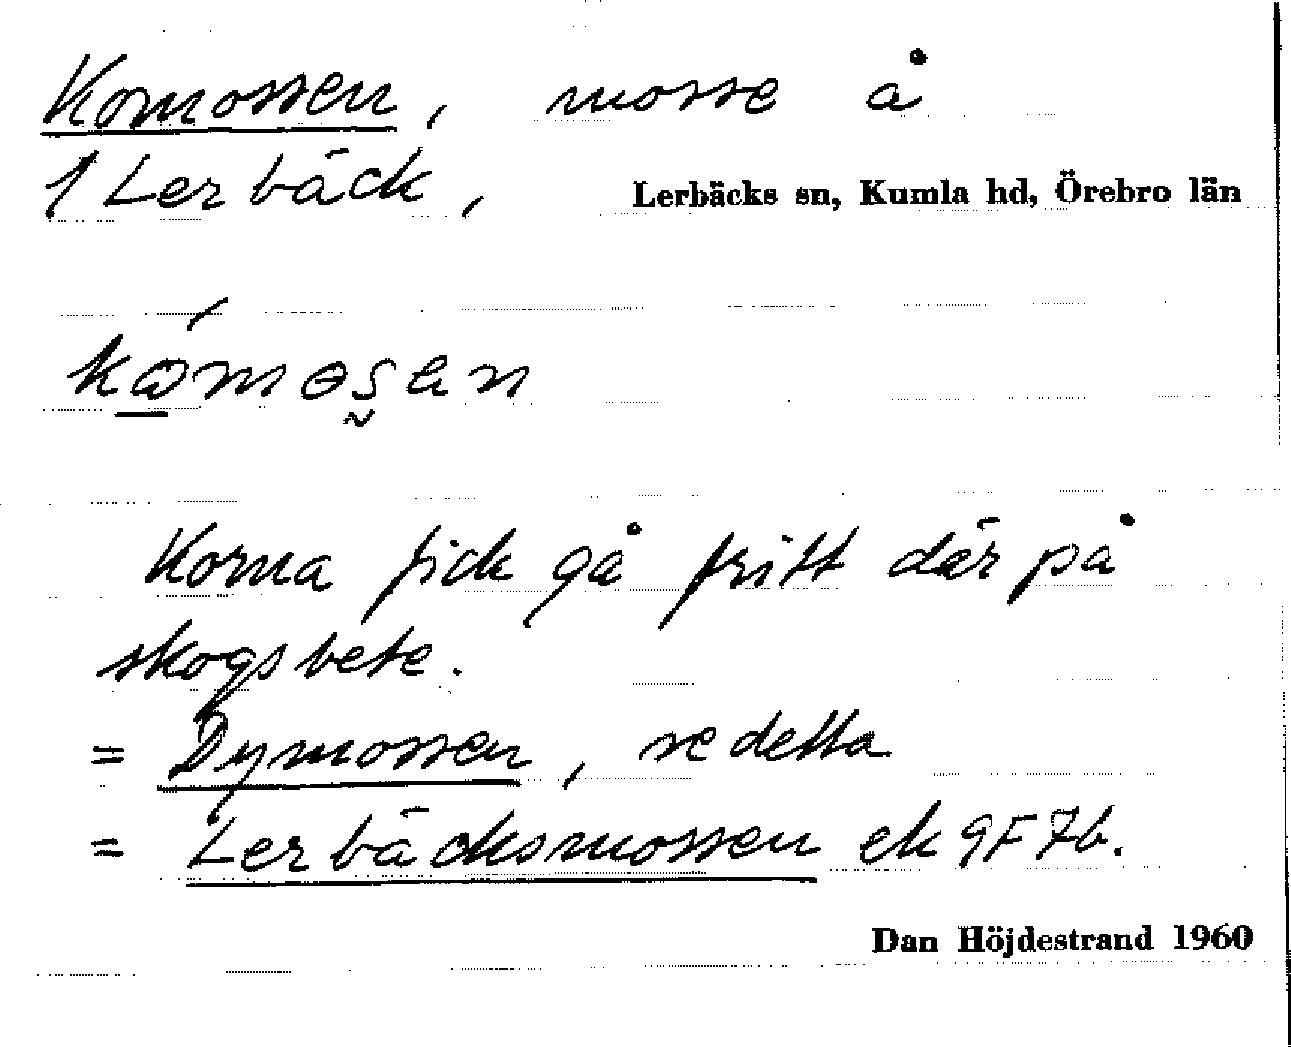 Komossen, mosse å
1 Lerbäck, Lerbäcks sn, Kumla hd, Örebro län
Korna fick gå fritt där på
skogsbete.
= Dymossen, se detta
= Lerbäcksmossen ek 9F7b.
Dan Höjdestrand 1960